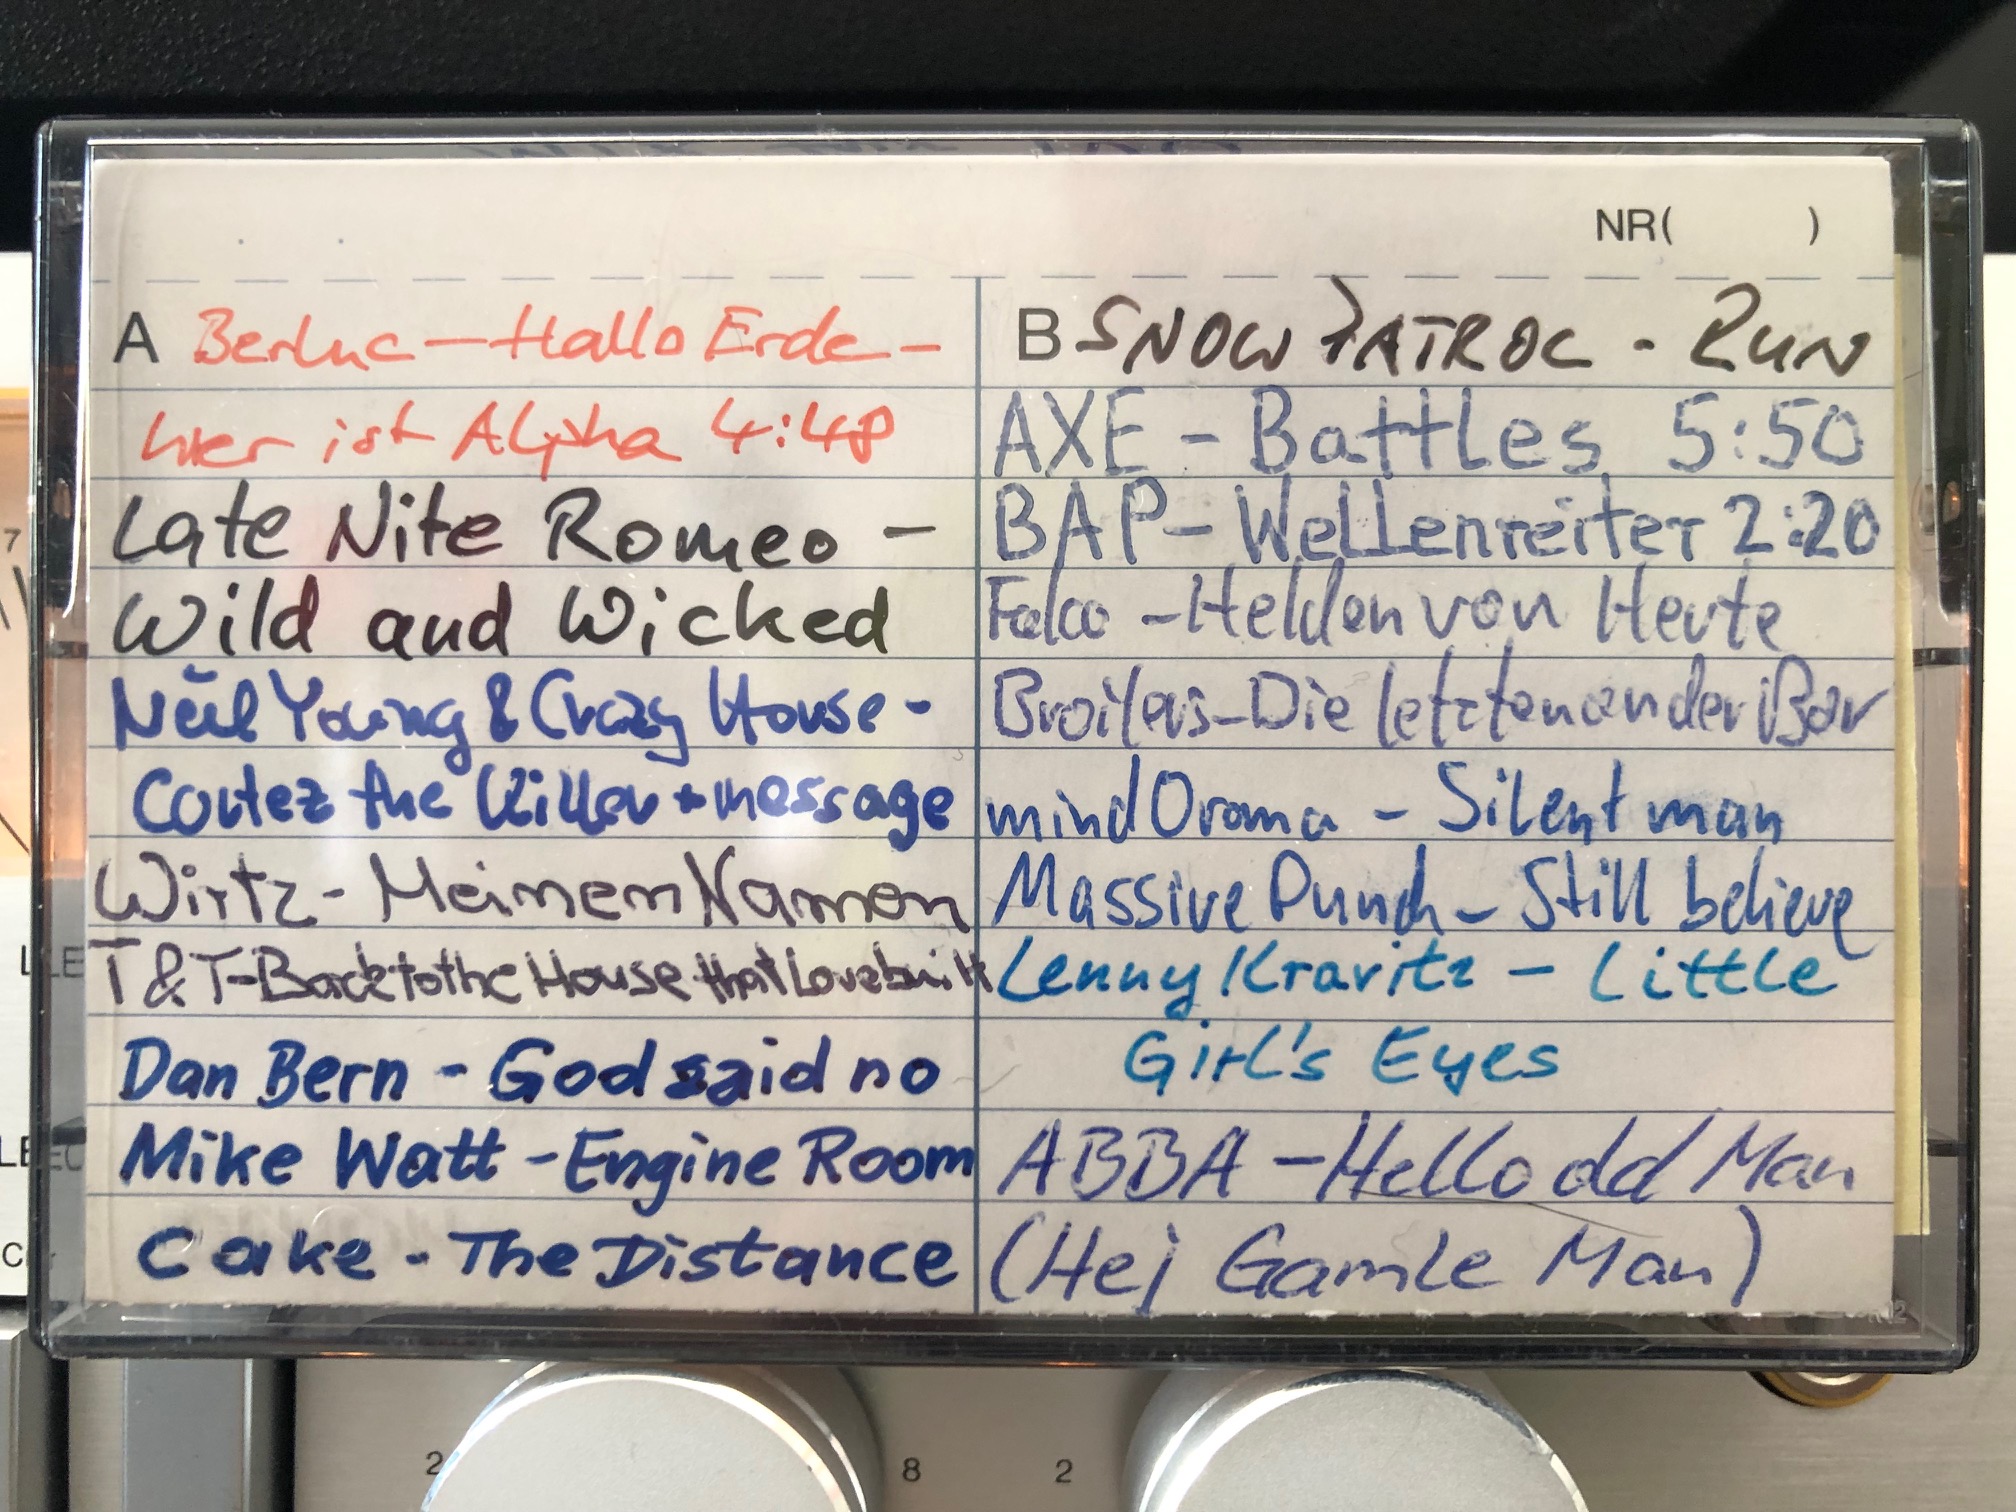 NR( )
A Berluc - Hallo Erde -
hier ist Alpha 4:48
Late Nite Romeo -
Wild and Wicked
Neil Young & Crazy House -
Cortez the Killer + message
Wirtz - Meinen Namen
T & T - Back to the House that Love built
Dan Bern - God said no
Mike Watt - Engine Room
Cake - The Distance
B SNOW PATROL - RUN
AXE - Battles 5:50
BAP - Wellenreiter 2:20
Falco - Helden von Heute
Broilers - Die letzten an der Bar
mind Orama - Silent man
Massive Punch - Still believe
Lenny Kravitz - Little
Girl's Eyes
ABBA - Hello old Man
(Hej Gamle Man)
7
LE
2
8
2